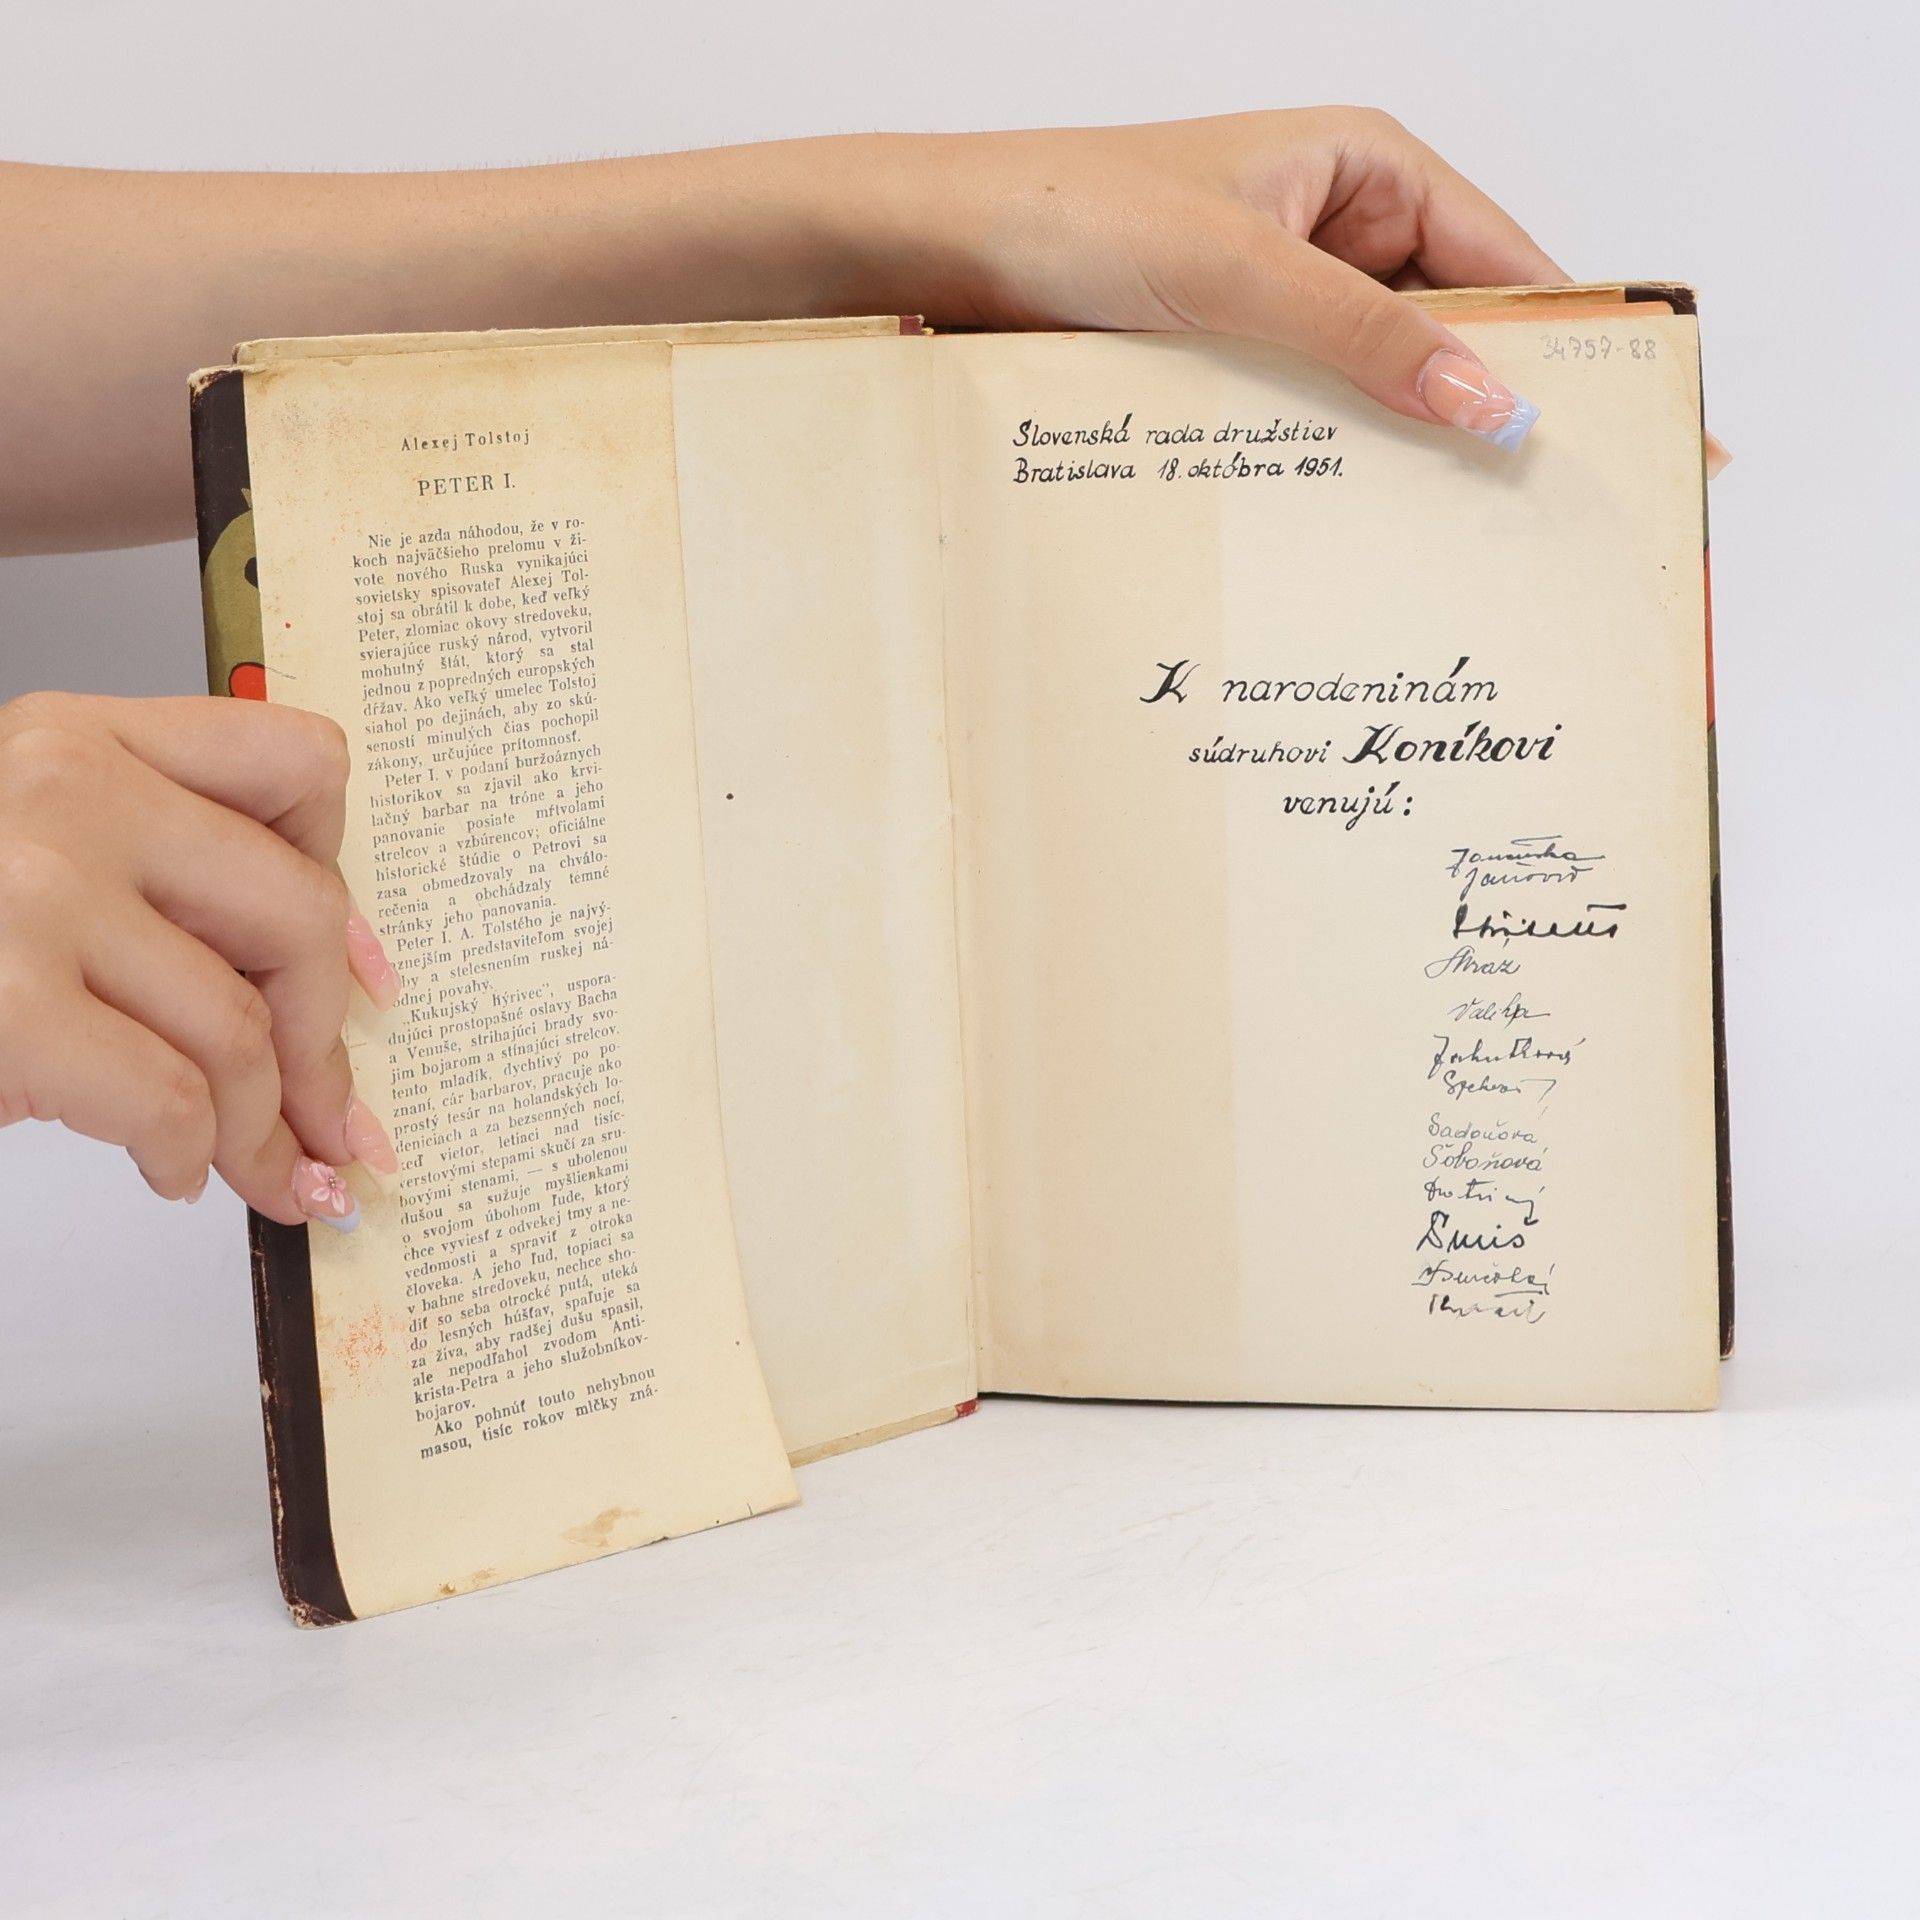 Alexej Tolstoj
PETER I.
Nie je azda náhodou, že v ro-
koch najväčšieho prelomu v ži-
vote nového Ruska vynikajúci
sovietsky spisovateľ Alexej Tol-
stoj sa obrátil k dobe, keď veľký
Peter, zlomiac okovy stredoveku,
svierajúce ruský národ, vytvoril
mohutný štát, ktorý sa stal
jednou z popredných europských
dŕžav. Ako veľký umelec Tolstoj
siahol po dejinách, aby zo skú-
seností minulých čias pochopil
zákony, určujúce prítomnosť.
Peter I. v podaní buržoáznych
historikov sa zjavil ako krvi-
lačný barbar na tróne a jeho
panovanie posiate mŕtvolami
strelcov a vzbúrencov; oficiálne
historické štúdie o Petrovi sa
zasa obmedzovaly na chválo-
rečenia a obchádzaly temné
stránky jeho panovania.
Peter I. A. Tolstého je najvý-
aznejším predstaviteľom svojej
by a stelesnením ruskej ná-
odnej povahy.
„Kukujský hýrivec", uspora-
dujúci prostopašné oslavy Bacha
a Venuše, strihajúci brady svo-
jim bojarom a stínajúci strelcov.
tento mladík, dychtivý po po-
znaní, cár barbarov, pracuje ako
prostý tesár na holandských lo-
deniciach a za bezsenných nocí,
keď vietor, letiaci nad tisíc-
verstovými stepami skučí za sru-
bovými stenami, — s ubolenou
dušou sa sužuje myšlienkami
o svojom úbohom ľude, ktorý
chce vyviesť z odvekej tmy a ne-
vedomosti a spraviť z otroka
človeka. A jeho ľud, topiaci sa
v bahne stredoveku, nechce sho-
diť so seba otrocké putá, uteká
do lesných húšťav, spaľuje sa
za živa, aby radšej dušu spasil,
ale nepodľahol zvodom Anti-
krista-Petra a jeho služobníkov-
bojarov.
Ako pohnúť touto nehybnou
masou, tisíc rokov mlčky zná-
34757-88
Slovenská rada družstiev
Bratislava 18. októbra 1951.
K narodeninám
súdruhovi Koníkovi
venujú:
Mráz
Valiha
Sadoňová
Šoboňová